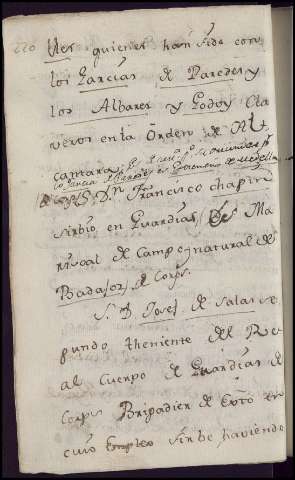 220
Ues quienes han sido con
los Garcias de Paredes y
los Albares y Godoy Cla
veros en la Orden de Al+
camara
Garcia de Medellin
S. Dn Francisco chapin
sirbio en Guardias, es Ma
riscal de Campo natural de
Badajoz, de Corps.
S. D. Josef de Salas se
gundo theniente del Re
al Cuerpo de Guardias de
Corps Brigadier de Exto en
cuio Empleo sirbe haviendo